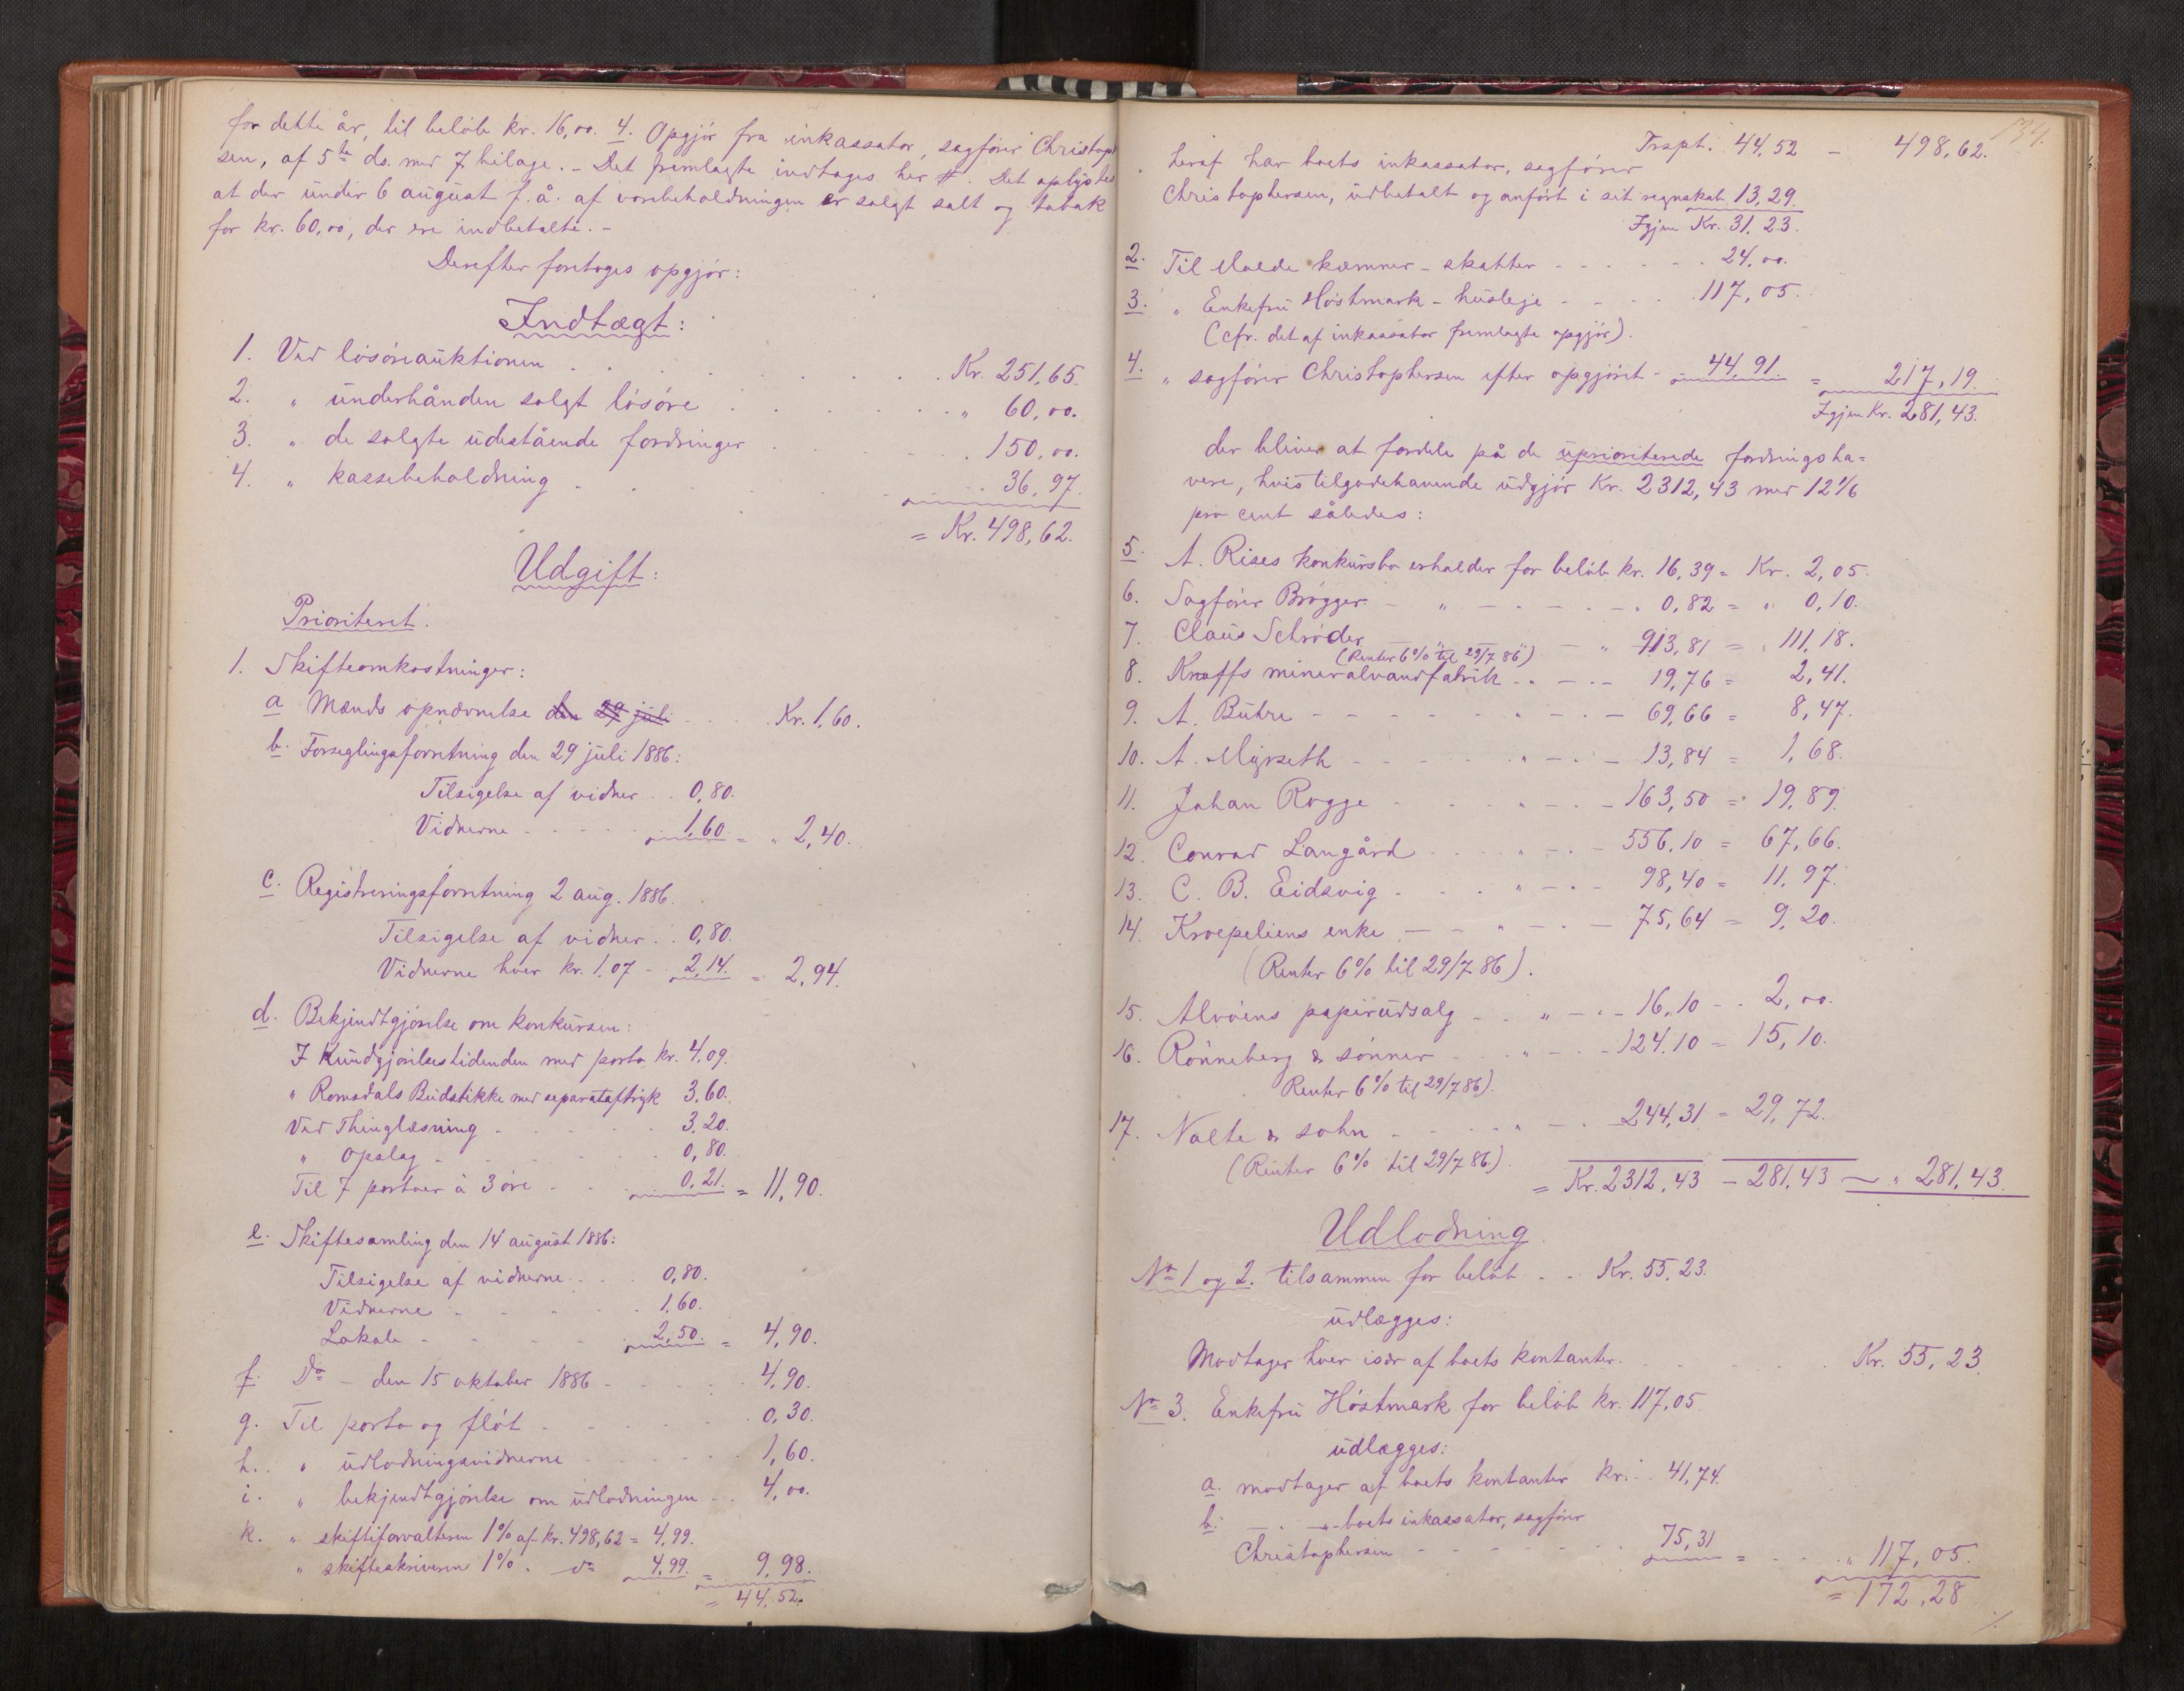 for dette år, til beløb kr. 16,00. 4. Opgjör fra inkassator, sagförer Christoph
sen, af 5te ds. med 7 bilage. - Det fremlagte indtages her #. Det oplystes
at der under 6 august f. å. af varebeholdningen er solgt salt og tobak
for kr. 60,00, der ere indbetalte. -
Derefter foretoges opgjör:
Indtægt:
1. Ved lösöreauktionen Kr. 251,65.
2. " underhånden solgt lösöre " 60,00.
3. " de solgte udestående fordringer 150,00.
4. " kassebeholdning 36,97.
= Kr. 498,62.
Udgift:
Prioriteret.
1. Skifteomkostninger:
a Mænds opnævnelse den 29 juli Kr. 1,60.
b. Forseglingsforretning den 29 juli 1886:
Tilsigelse af vidner 0,80.
Vidnerne 1,60 = " 2,40.
c. Registreringsforretning 2 aug. 1886.
Tilsigelse af vidner 0,80.
Vidnerne hver kr. 1,07 - 2,14. = 2,94.
d. Bekjendtgjörelse om konkursen:
I Kundgjörelsestidenden med porto kr. 4,09.
" Romsdals Budstikke med separataftryk 3,60.
Ved Thinglæsning 3,20.
" Opslag 0,80.
Til 7 portoer à 3 öre 0,21. = 11,90.
e. Skiftesamling den 14 august 1886:
Tilsigelse af vidnerne 0,80.
Vidnerne 1,60.
Lokale 2,50. = 4,90.
f. Do - den 15 oktober 1886 4,90.
g. Til porto og flöt 0,30.
h. " udlodningsvidnerne 1,60.
i. " bekjendtgjörelse om udlodningen 4,00.
k. " skifteforvalteren 1% af kr. 498,62 = 4,99.
" skifteskriveren 1%. do 4,99. = 9,98.
= 44,52.
134.
Trspt. 44,52 - 498,62.
heraf har boets inkassator, sagförer
Christophersen, udbetalt og anfört i sit regnskab 13,29.
Igjen Kr. 31,23.
2. Til Molde kæmner - skatter 24,00.
3. " Enkefru Höstmark - husleje 117,05.
(cfr. det af inkassator fremlagte opgjör).
4. " sagförer Christophersen efter opgjöret - 44,91. = 217,19.
Igjen Kr. 281,43.
der bliver at fordele på de uprioriterede fordringsha=
vere, hvis tilgodehavende udgjör Kr. 2312,43 med 12 1/6
pro cent således:
5. A. Rises konkursbo erholder for beløb kr. 16,39 = Kr. 2,05.
6. Sagförer Brögger - " - 0,82 = " 0,10.
7. Claus Schröder - " 913,81 = " 111,18.
(Renter 6% til 29/7 86)
8. Knoffs mineralvandfabrik - 19,76 = 2,41.
9. A. Buhre - 69,66 = 8,47.
10. A. Myrseth - 13,84 = 1,68.
11. Johan Rogge - 163,50 = 19,89.
12. Conrad Langård - 556,10 = 67,66.
13. C. B. Eidsvig - 98,40 = 11,97.
14. Kroepeliens enke - 75,64 = 9,20.
(Renter 6% til 29/7 86).
15. Alvöens papirudsalg - 16,10 - 2,00.
16. Rönneberg & sönner - 124,10 = 15,10.
Renter 6% til 29/7 86).
17. Nolte & sohn - 244,31 = 29,72.
(Renter 6% til 29/7 86)
= Kr. 2312,43 - 281,43 - " 281,43.
Udlodning.
No 1 og 2. tilsammen for beløb Kr. 55,23.
udlægges:
Modtager hver især af boets kontanter. Kr. 55,23.
No 3. Enkefru Höstmark for beløb kr. 117,05.
udlægges:
a. modtager af boets kontanter kr. 41,74.
b. - " - boets inkassator, sagförer
Christophersen 75,31 = " 117,05.
= 172,28